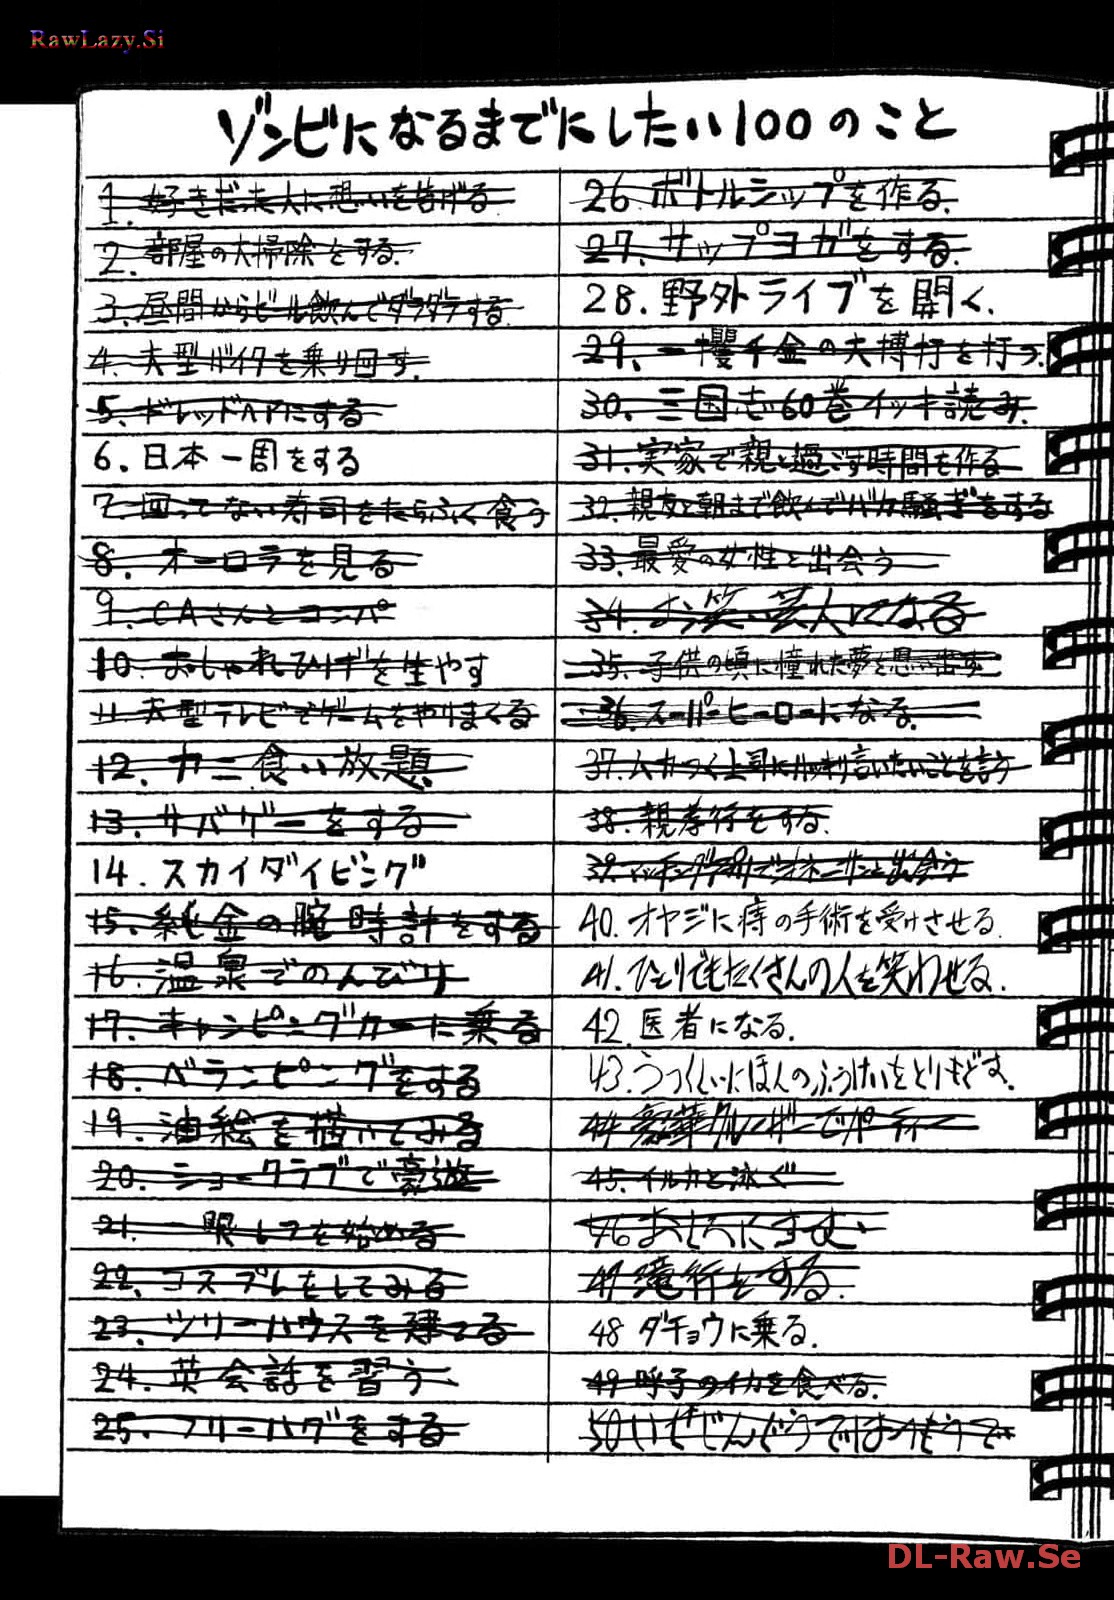 RawLazy.Si
ゾンビになるまでにしたい100のこと
1. 好きだった人に想いを告げる
2. 部屋の大掃除をする.
3. 昼間からビール飲んでダラダラする.
4. 大型バイクを乗り回す.
5. ドレッドヘアにする
6. 日本一周をする
7. 回ってない寿司をたらふく食う
8. オーロラを見る
9. CAさんとコンパ
10. おしゃれひげを生やす
11. 大型テレビでゲームをやりまくる
12. カニ食い放題
13. サバゲーをする
14. スカイダイビング
15. 純金の腕時計をする
16. 温泉でのんびり
17. キャンピングカーに乗る
18. ベランピングをする
19. 油絵を描いてみる
20. ショークラブで豪遊
21. 一眼レフを始める
22. コスプレをしてみる
23. ツリーハウスを建てる
24. 英会話を習う
25. フリーハグをする
26. ボトルシップを作る.
27. サップヨガをする.
28. 野外ライブを開く.
29. 一攫千金の大博打を打つ.
30. 三国志60巻イッキ読み.
31. 実家で親と過ごす時間を作る
32. 親友と朝まで飲んでバカ騒ぎをする
33. 最愛の女性と出会う
34. お笑い芸人になる
35. 子供の頃に憧れた夢を思い出す
36. スーパーヒーローになる.
37. ムカつく上司にハッキリ言いたいことを言う
38. 親孝行をする.
39. マッチングアプリでオネーサンと出会う
40. オヤジに痔の手術を受けさせる.
41. ひとりでもたくさんの人を笑わせる.
42. 医者になる.
43. うつくしいにほんのふうけいをとりもどす.
44. 豪華クルーザーでパーティー
45. イルカと泳ぐ
46
47 滝行をする.
48 ダチョウに乗る.
49 呼子のイカを食べる.
50 いぜんどうではつもうで
DL-Raw.Se